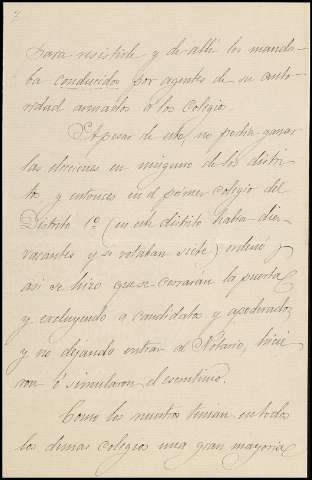 para resistirle y de allí los manda-
ba conducidos por agentes de su auto-
ridad armados á los Colegio.
Apesar de esto, no podia ganar
las elecciones en ninguno de los distri-
to y entonces en el primer colegio del
Distrito 1º (en este distrito habia diez
vacantes y se votaban siete) ordenó y
asi se hizo que se cerraran la puertas
y excluyendo a candidatos y apoderados
y no dejando entrar al Notario, hicie
ron ó simularon el escrutinio.
Como los nuestros tenian en todos
los demas colegios una gran mayoria